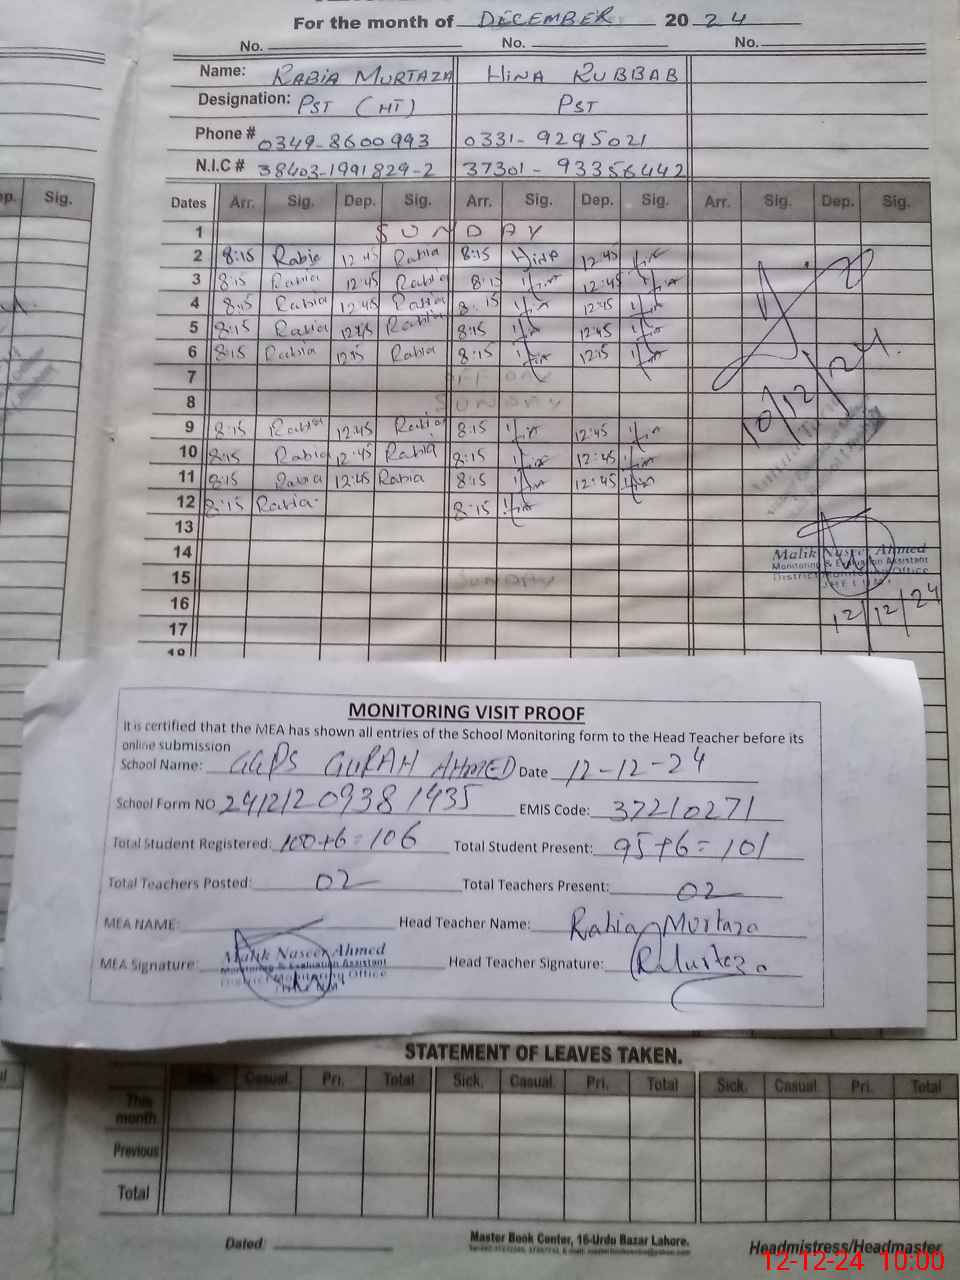 For the month of DECEMBER 20 24
No. No. No.
Name: RABIA MURTAZA HINA RUBBAB
Designation: PST (HT) PST
Phone # 0349-8600993 0331-9295021
N.I.C # 38403-1991829-2 37301-93356442
ep. Sig. Dates Arr. Sig. Dep. Sig. Arr. Sig. Dep. Sig. Arr. Sig. Dep. Sig.
1 SUNDAY
2 8:15 Rabia 12:45 Rabia 8:15 HINA 12:45
3 8:15 Rabia 12:45 Rabia 8:15 12:45
4 8:15 Rabia 12:45 Rabia 8:15 12:45
5 8:15 Rabia 12:45 Rabia 8:15 12:45
6 8:15 Rabia 12:15 Rabia 8:15 12:15
7 OFF DAY
8 SUNDAY
10/12/24.
9 8:15 Rabia 12:45 Rabia 8:15 12:45
10 8:15 Rabia 12:45 Rabia 8:15 12:45
11 8:15 Rabia 12:45 Rabia 8:15 12:45
12 8:15 Rabia 8:15
13
14
Malik Naseer Ahmed
Monitoring & Evaluation Assistant
District Monitoring Office
JHELUM
15 Sunday
16
12/12/24
17
18
MONITORING VISIT PROOF
It is certified that the MEA has shown all entries of the School Monitoring form to the Head Teacher before its
online submission
School Name: GGPS GURAH AHMED Date 12-12-24
School Form NO 24121209381435 EMIS Code: 37210271
Total Student Registered: 100+6=106 Total Student Present: 95+6=101
Total Teachers Posted: 02 Total Teachers Present: 02
MEA NAME: Head Teacher Name: Rabia Murtaza
MEA Signature: Malik Naseer Ahmed Head Teacher Signature: RMurtaza
Monitoring & Evaluation Assistant
District Monitoring Office
STATEMENT OF LEAVES TAKEN.
Sick. Casual. Pri. Total Sick. Casual. Pri. Total Sick. Casual. Pri. Total
This month
Previous
Total
Dated: Master Book Center, 16-Urdu Bazar Lahore. Headmistress/Headmaster
12-12-24 10:00